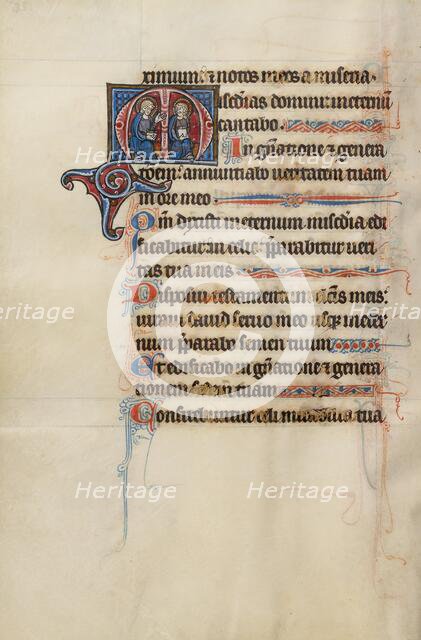 ximum: & notos meos a miseria.
Misedias domini ineternū
cantabo.
In gnatione & genera
tōem: annuntiabo veritatem tuam
in ore meo.
Qm dixisti ineternum misedia edi
ficabitur in celis: pparabitur veri
tas tua in eis
Disposui testamentum electis meis.
iuraui dauid seruo meo usq; in eter
num pparabo semen tuum
Et edificabo in gnatione & genera
tionem sedem tuam
Confitebuntur celi mirabilia tua
Heritage
Heritage
Heritage
Heritage
Heritage
Heritage
Heritage